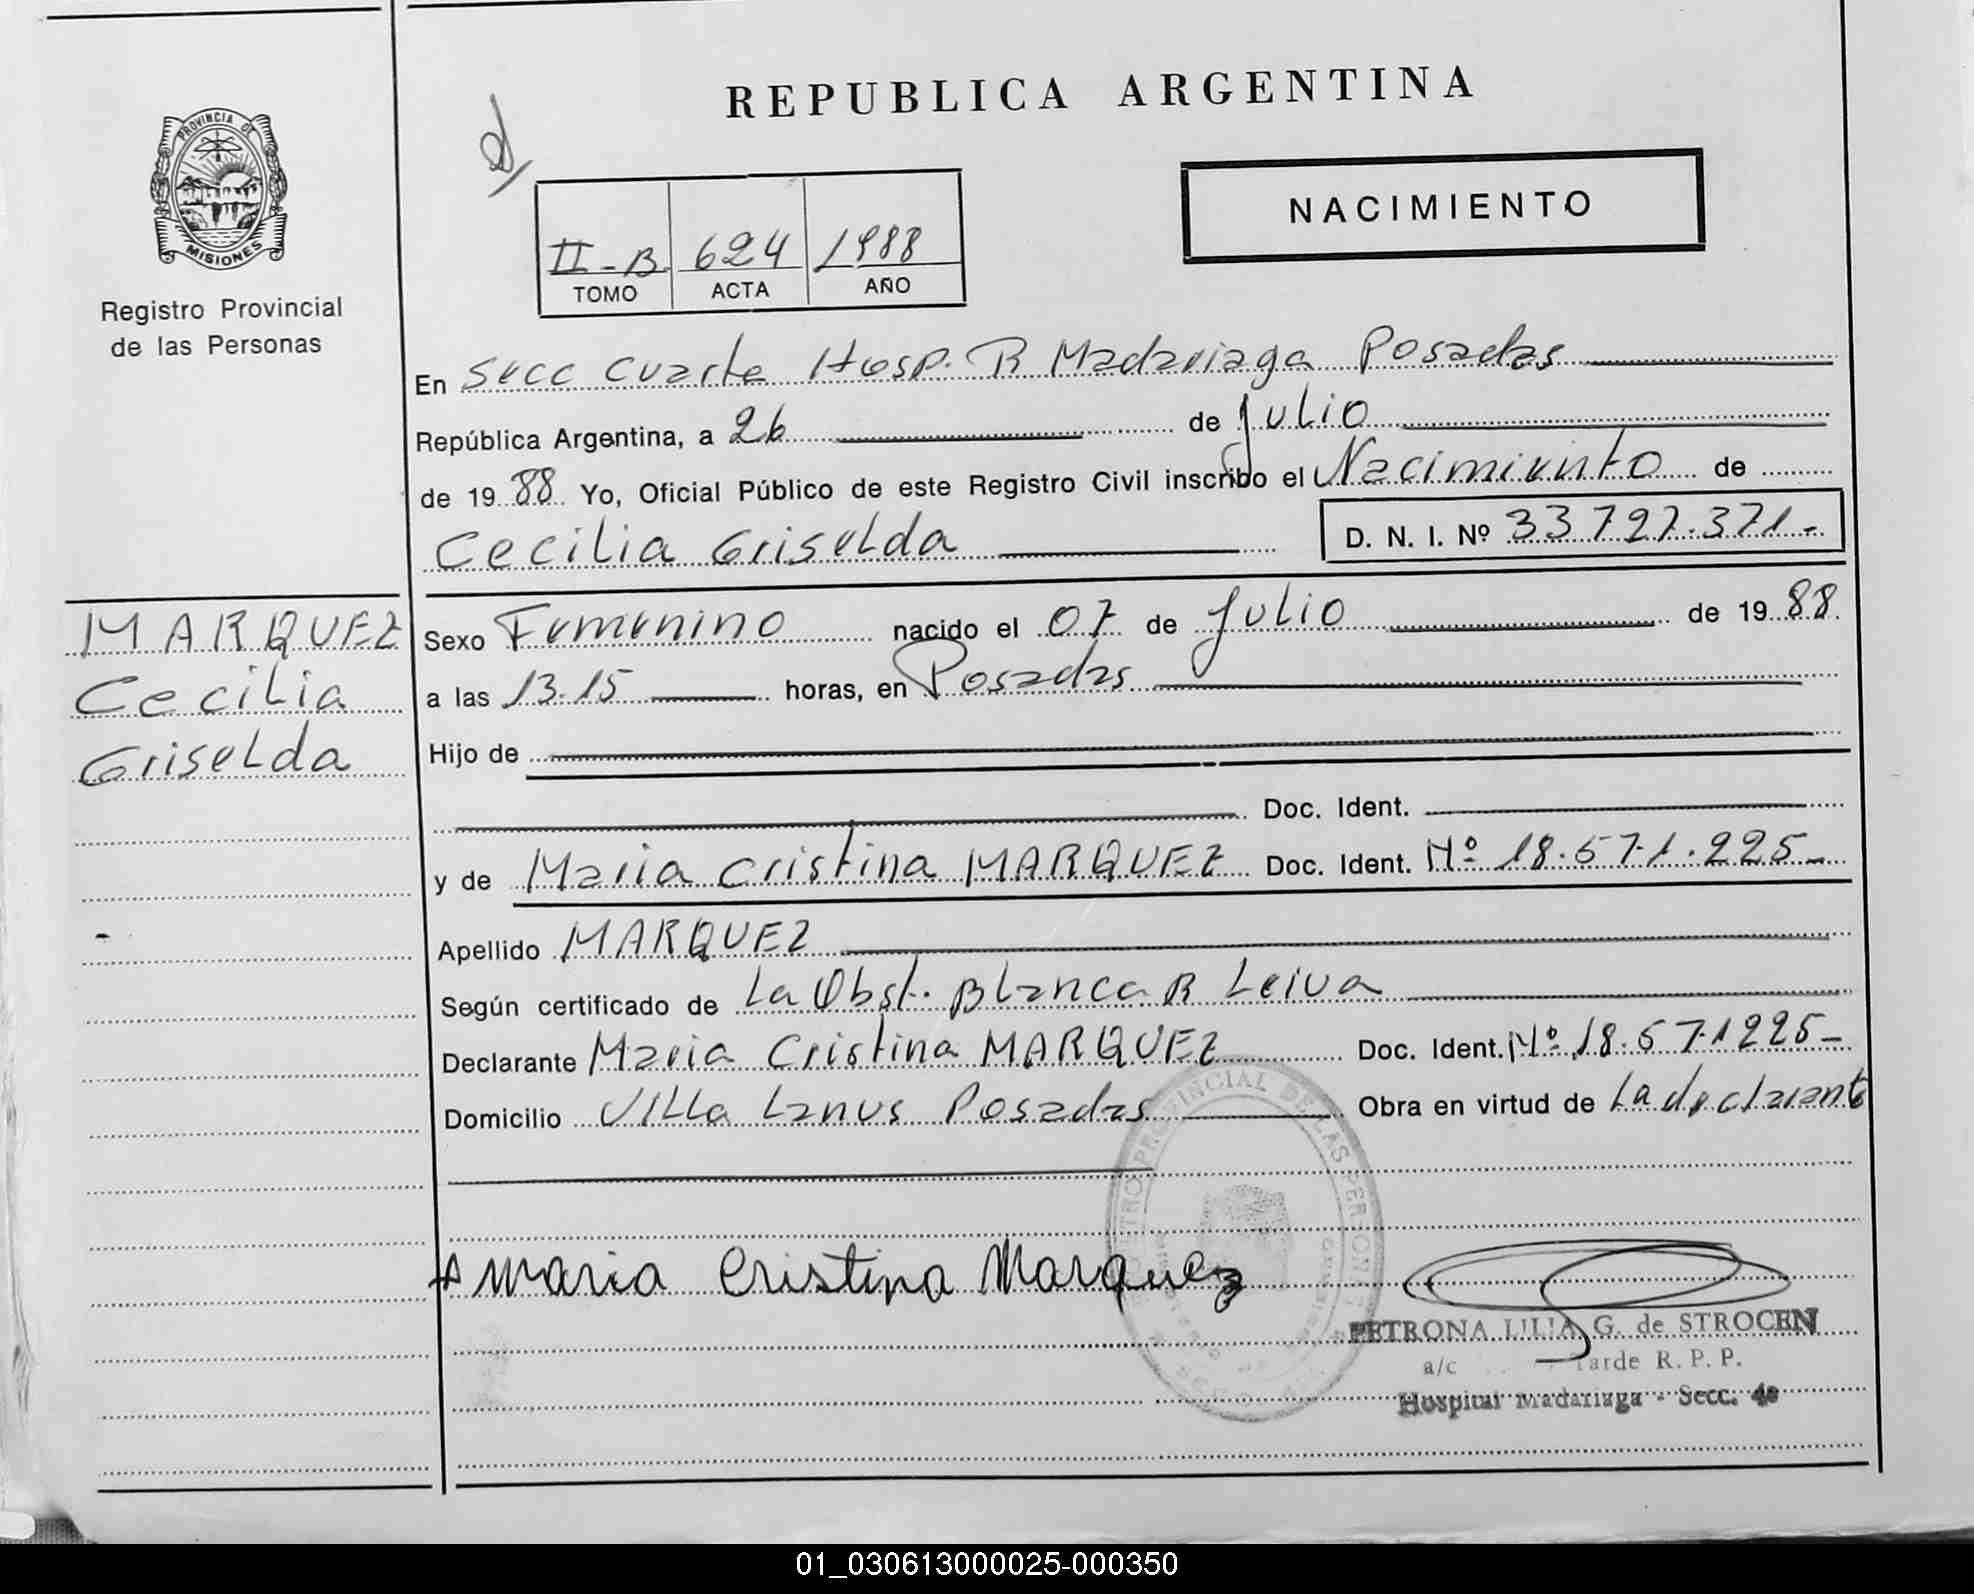 REPUBLICA ARGENTINA
PROVINCIA DE
MISIONES
Registro Provincial
de las Personas
NACIMIENTO
II-B 624 1988
TOMO ACTA AÑO
En Secc Cuarta Hosp. R Madariaga Posadas
República Argentina, a 26 de Julio
de 19 88 Yo, Oficial Público de este Registro Civil inscribo el Nacimiento de
Cecilia Griselda D. N. I. Nº 33.727.371.-
MARQUEZ
Cecilia
Griselda
Sexo Femenino nacido el 07 de Julio de 19 88.
a las 13.15 horas, en Posadas
Hijo de
Doc. Ident.
y de Maria Cristina MARQUEZ Doc. Ident. Nº 18.571.225-
Apellido MARQUEZ
Según certificado de La Obst. Blanca R Leiva
Declarante Maria Cristina MARQUEZ Doc. Ident. Nº 18.571225-
Domicilio Villa Lanus Posadas Obra en virtud de La declarante
Maria Cristina Marquez
PETRONA LILIA G. de STROCEN
a/c Tarde R. P. P.
Hospital Madariaga - Secc. 4a
01_030613000025-000350